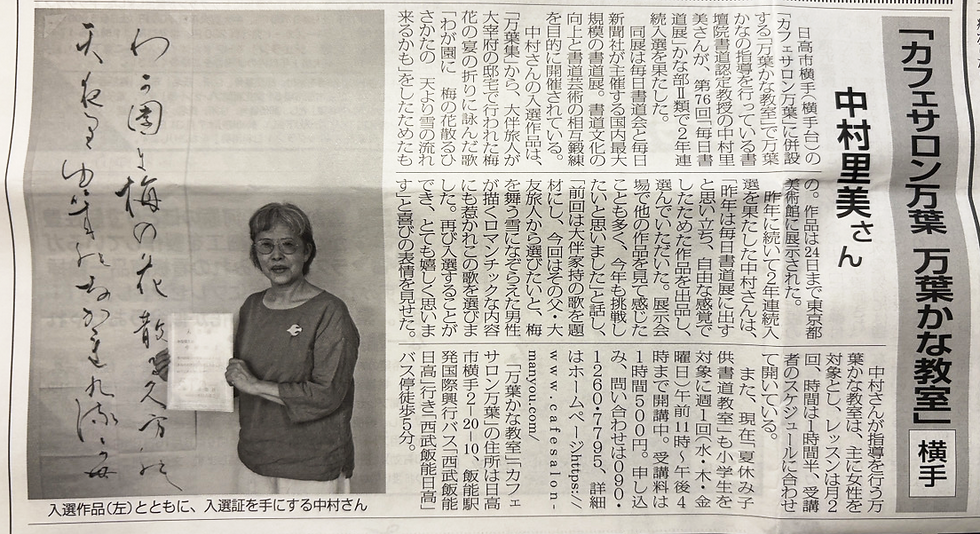 「カフェサロン万葉 万葉かな教室」 横手
中村里美さん
日高市横手(横手台)の
「カフェサロン万葉」に併設
する「万葉かな教室」で万葉
かなの指導を行っている書
壇院書道認定教授の中村里
美さんが、第76回「毎日書
道展」かな部Ⅱ類で2年連
続入選を果たした。
同展は毎日書道会と毎日
新聞社が主催する国内最大
規模の書道展。書道文化の
向上と書道芸術の相互鍛練
を目的に開催されている。
中村さんの入選作品は、
「万葉集」から、大伴旅人が
大宰府の邸宅で行われた梅
花の宴の折りに詠んだ歌
「わが園に 梅の花散るひ
さかたの 天より雪の流れ
来るかも」をしたためたも
の。作品は24日まで東京都
美術館に展示された。
昨年に続いて2年連続入
選を果たした中村さんは、
「昨年は毎日書道展に出す
と思い立ち、自由な感覚で
したためた作品を出品し、
選んでいただいた。展示会
場で他の作品を見て感じた
ことも多く、今年も挑戦し
たいと思いました」と話し、
「前回は大伴家持の歌を題
材にし、今回はその父・大
友旅人から選びたいと、梅
を舞う雪になぞらえた男性
が描くロマンチックな内容
にも惹かれこの歌を選びま
した。再び入選することが
でき、とても嬉しく思いま
す」と喜びの表情を見せた。
中村さんが指導を行う万
葉かな教室は、主に女性を
対象とし、レッスンは月2
回、時間は1時間半、受講
者のスケジュールに合わせ
て開いている。
また、現在「夏休み子
供書道教室」も小学生を
対象に週1回(水・木・金
曜日)午前11時～午後4
時まで開講中。受講料は
1時間500円。申し込
み、問い合わせは090・
1260・7795、詳細
はホームページhttps://
www.cafesalon-
manyou.com/
「万葉かな教室」「カフェ
サロン万葉」の住所は日高
市横手2-20-10、飯能駅
発国際興行バス「西武飯能
日高」行き「西武飯能日高」
バス停徒歩5分。
入選作品(左)とともに、入選証を手にする中村さん